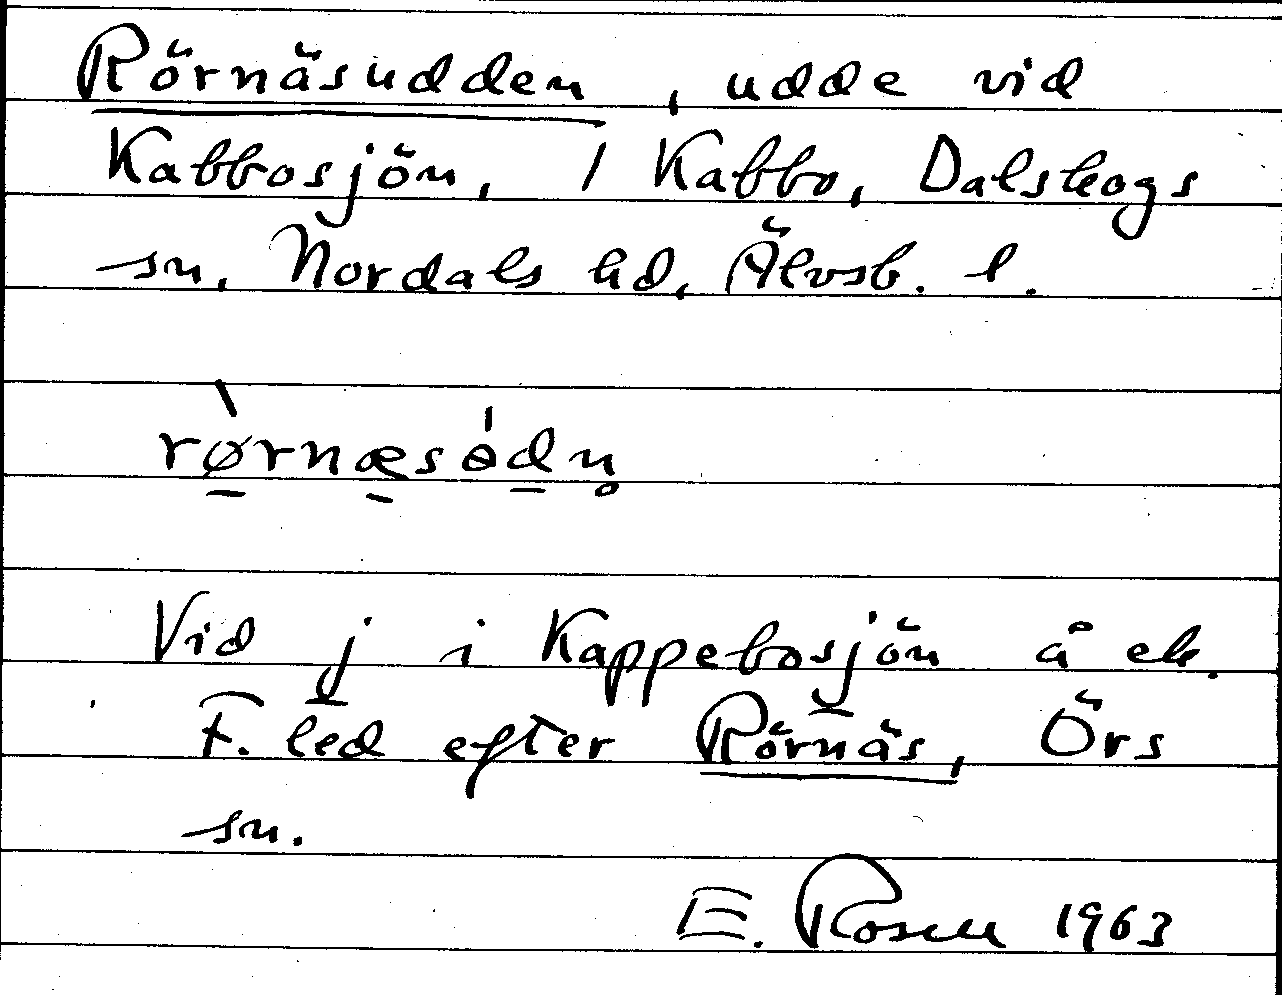 Rörnäsudden, udde vid
Kabbosjön, 1 Kabbo, Dalskogs
sn, Nordals hd, Älvsb. l.
rø̀rnæsɵ́dn̥
Vid j i Kappebosjön å ek.
F. led efter Rörnäs, Örs
sn.
E. Rosen 1963